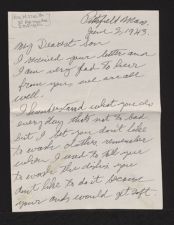 Pittsfield Mass.
June 2, 1943.
My Dearest Son
I received your letter and
I am very glad to hear
from you we are all
well.
I understand what you do
everyday thats not to bad
but I bet you don't like
to wash clothes remember
when I used to tell you
to wash the dishes you
don't like to do it because
your hands would get soft